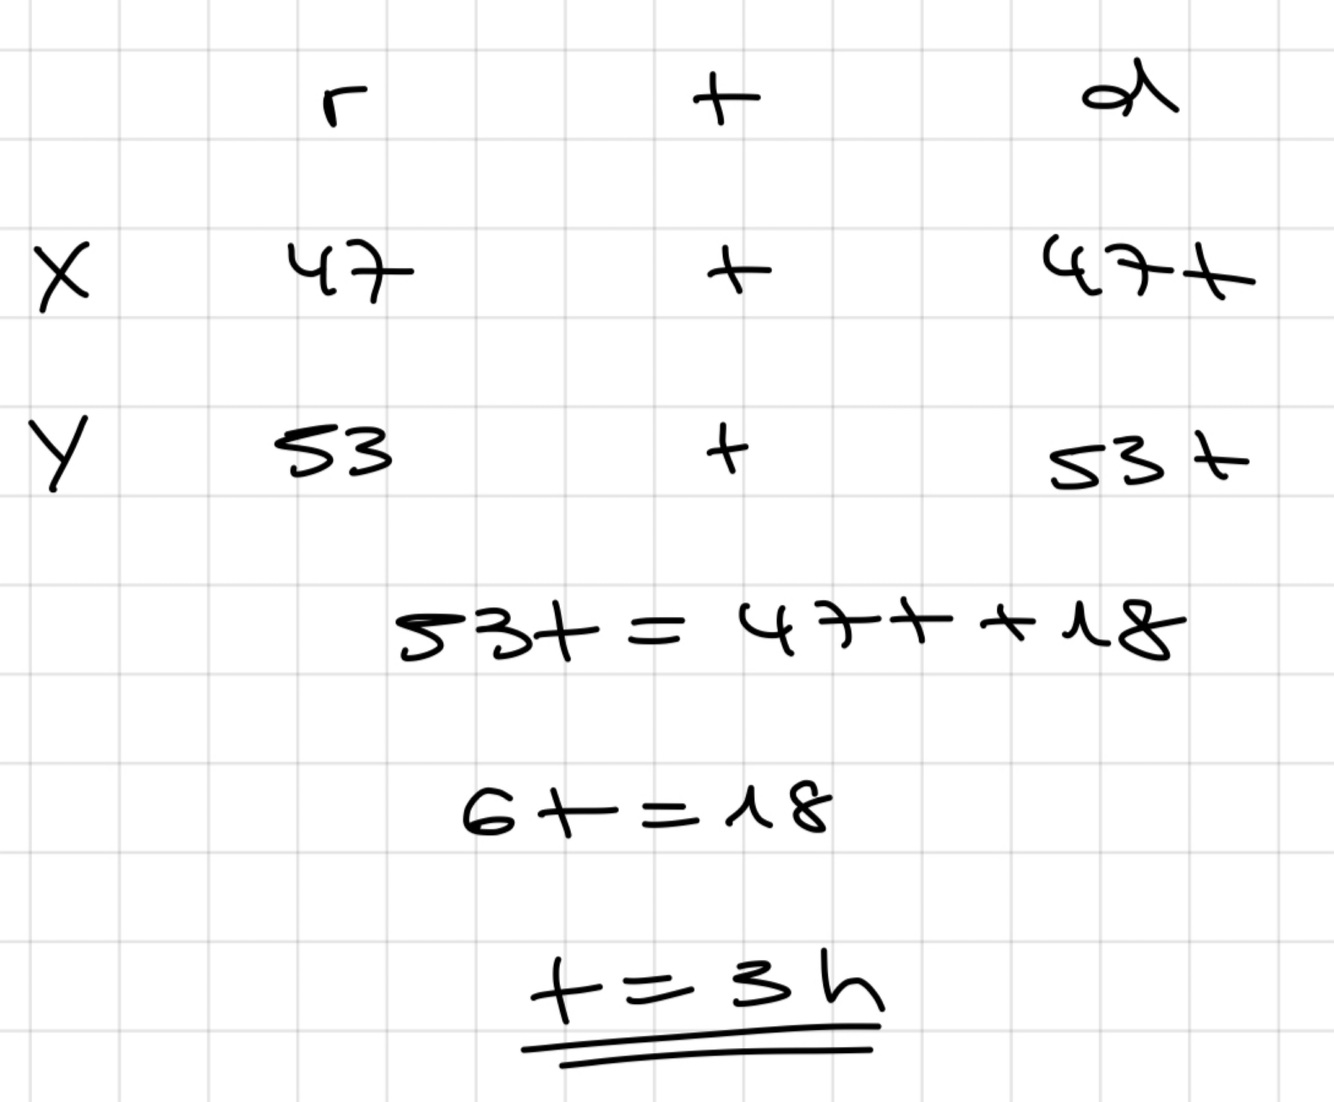 r t d
X 47 t 47t
Y 53 t 53t
53t = 47t + 18
6t = 18
t = 3 h